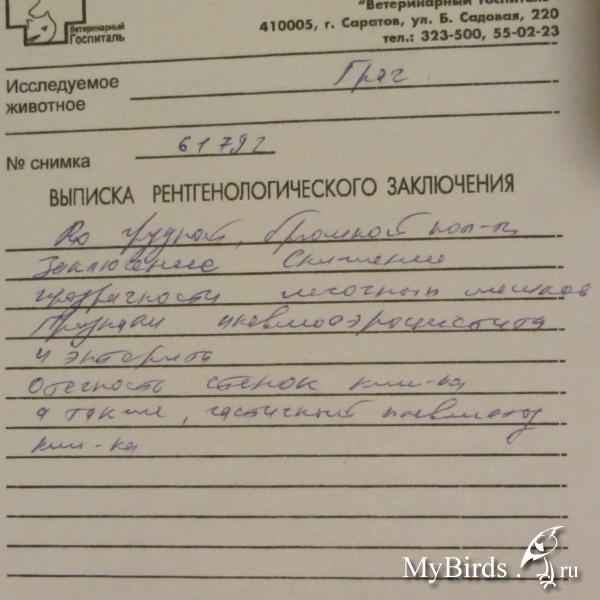 "Ветеринарный Госпиталь"
410005, г. Саратов, ул. Б. Садовая, 220
тел.: 323-500, 55-02-23
Ветеринарный
Госпиталь
Исследуемое
животное
Грач
№ снимка 61792
ВЫПИСКА РЕНТГЕНОЛОГИЧЕСКОГО ЗАКЛЮЧЕНИЯ
Rg грудной, брюшной пол-ти
Заключение Снижение
прозрачности легочных мешков
Признаки пневмоаэроцистита
и энтерита
Отечность стенок киш-ка
а также, частичный пневматоз
киш-ка
MyBirds.ru